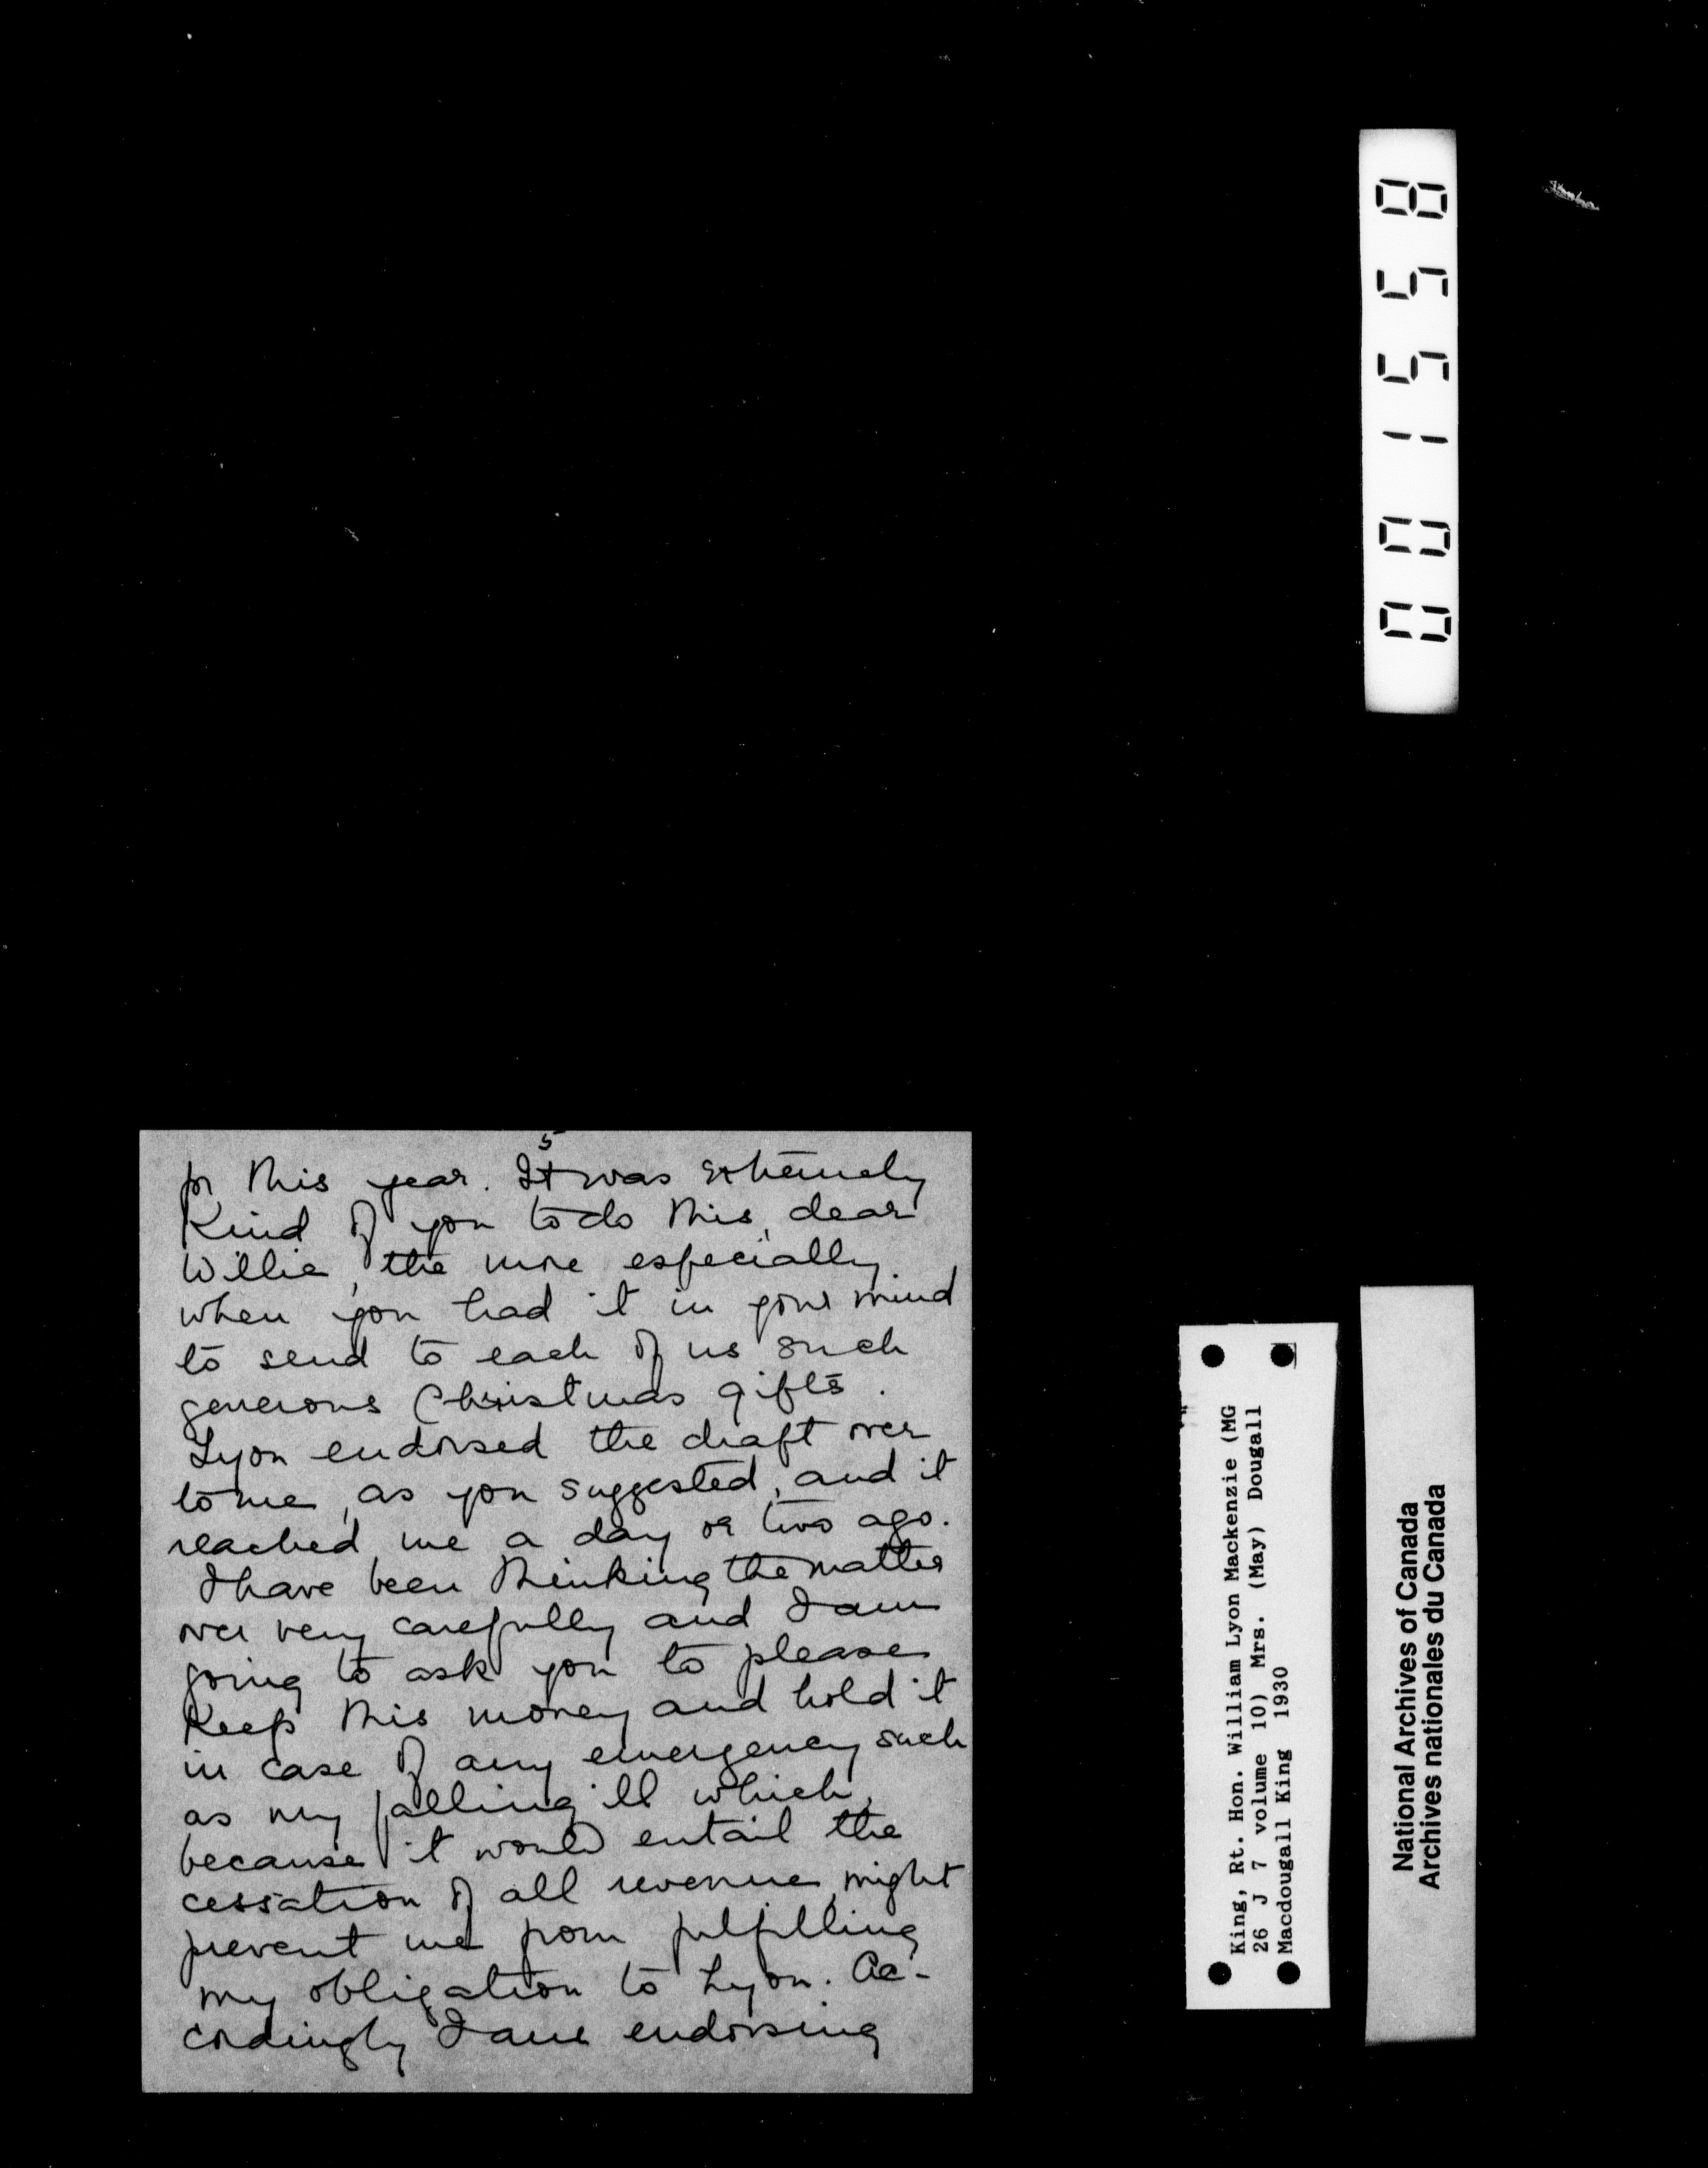 5
for this year. It was extremely
kind of you to do this, dear
Willie, the more especially
when you had it in your mind
to send to each of us such
generous Christmas gifts.
Lyon endorsed the draft over
to me, as you suggested, and it
reached me a day or two ago.
I have been thinking the matter
over very carefully and I am
going to ask you to please
keep this money and hold it
in case of any emergency such
as my falling ill which,
because it would entail the
cessation of all revenue, might
prevent me from fulfilling
my obligation to Lyon. Ac-
cordingly I am endorsing
001558
King, Rt. Hon. William Lyon Mackenzie (MG
26 J 7 volume 10) Mrs. (May) Dougall
Macdougall King 1930
National Archives of Canada
Archives nationales du Canada